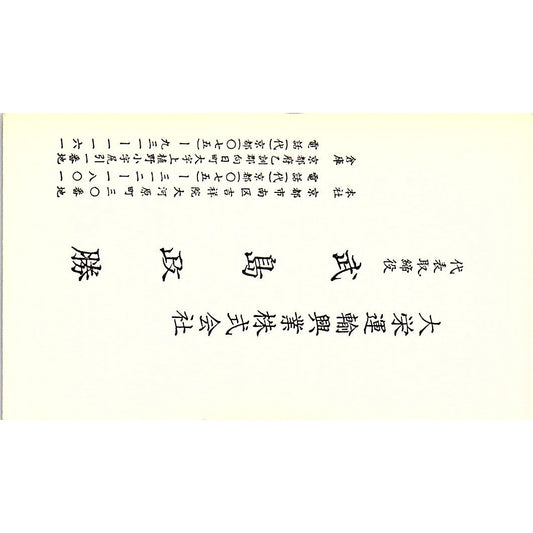 大栄運輸興業株式会社
代表取締役
武島政勝
本社 京都市南区吉祥院大河原町三〇番地
電話(代)京都(〇七五)|三一二|一八〇一
倉庫 京都府乙訓郡向日町大字上植野小字尾引一番地
電話(代)京都(〇七五)|九三一|一一六一